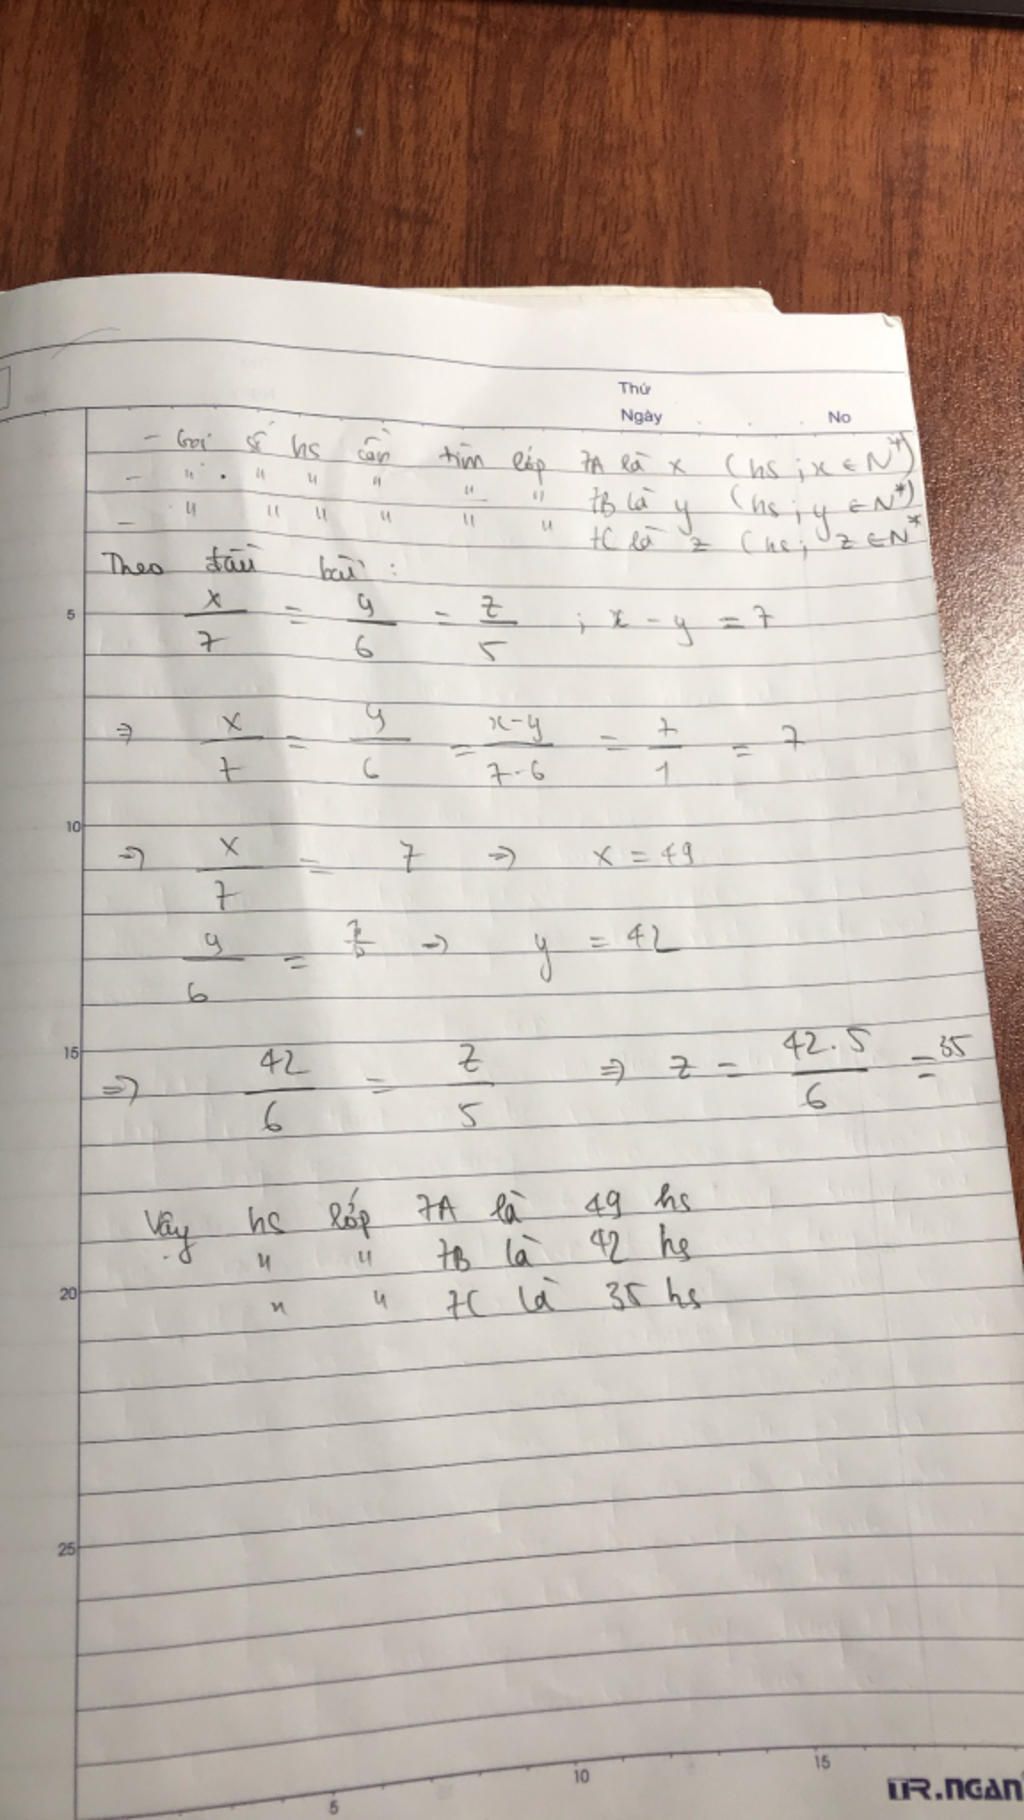 Thứ
Ngày . . . No
- Gọi số hs cần tìm lớp 7A là x (hs ; x ∈ N*)
- " " " " " " 7B là y (hs ; y ∈ N*)
- " " " " " " 7C là z (hs ; z ∈ N*
Theo đầu bài :
5
x/7 = y/6 = z/5 ; x - y = 7
⇒ x/7 = y/6 = x-y/7-6 = 7/1 = 7
10
⇒ x/7 = 7 ⇒ x = 49
y/6 = ⇒ y = 42
15
⇒ 42/6 = z/5 ⇒ z = 42.5/6 = 35
Vậy hs lớp 7A là 49 hs
" " 7B là 42 hs
20
" " 7C là 35 hs
25
5 10 15
TR.NGAN